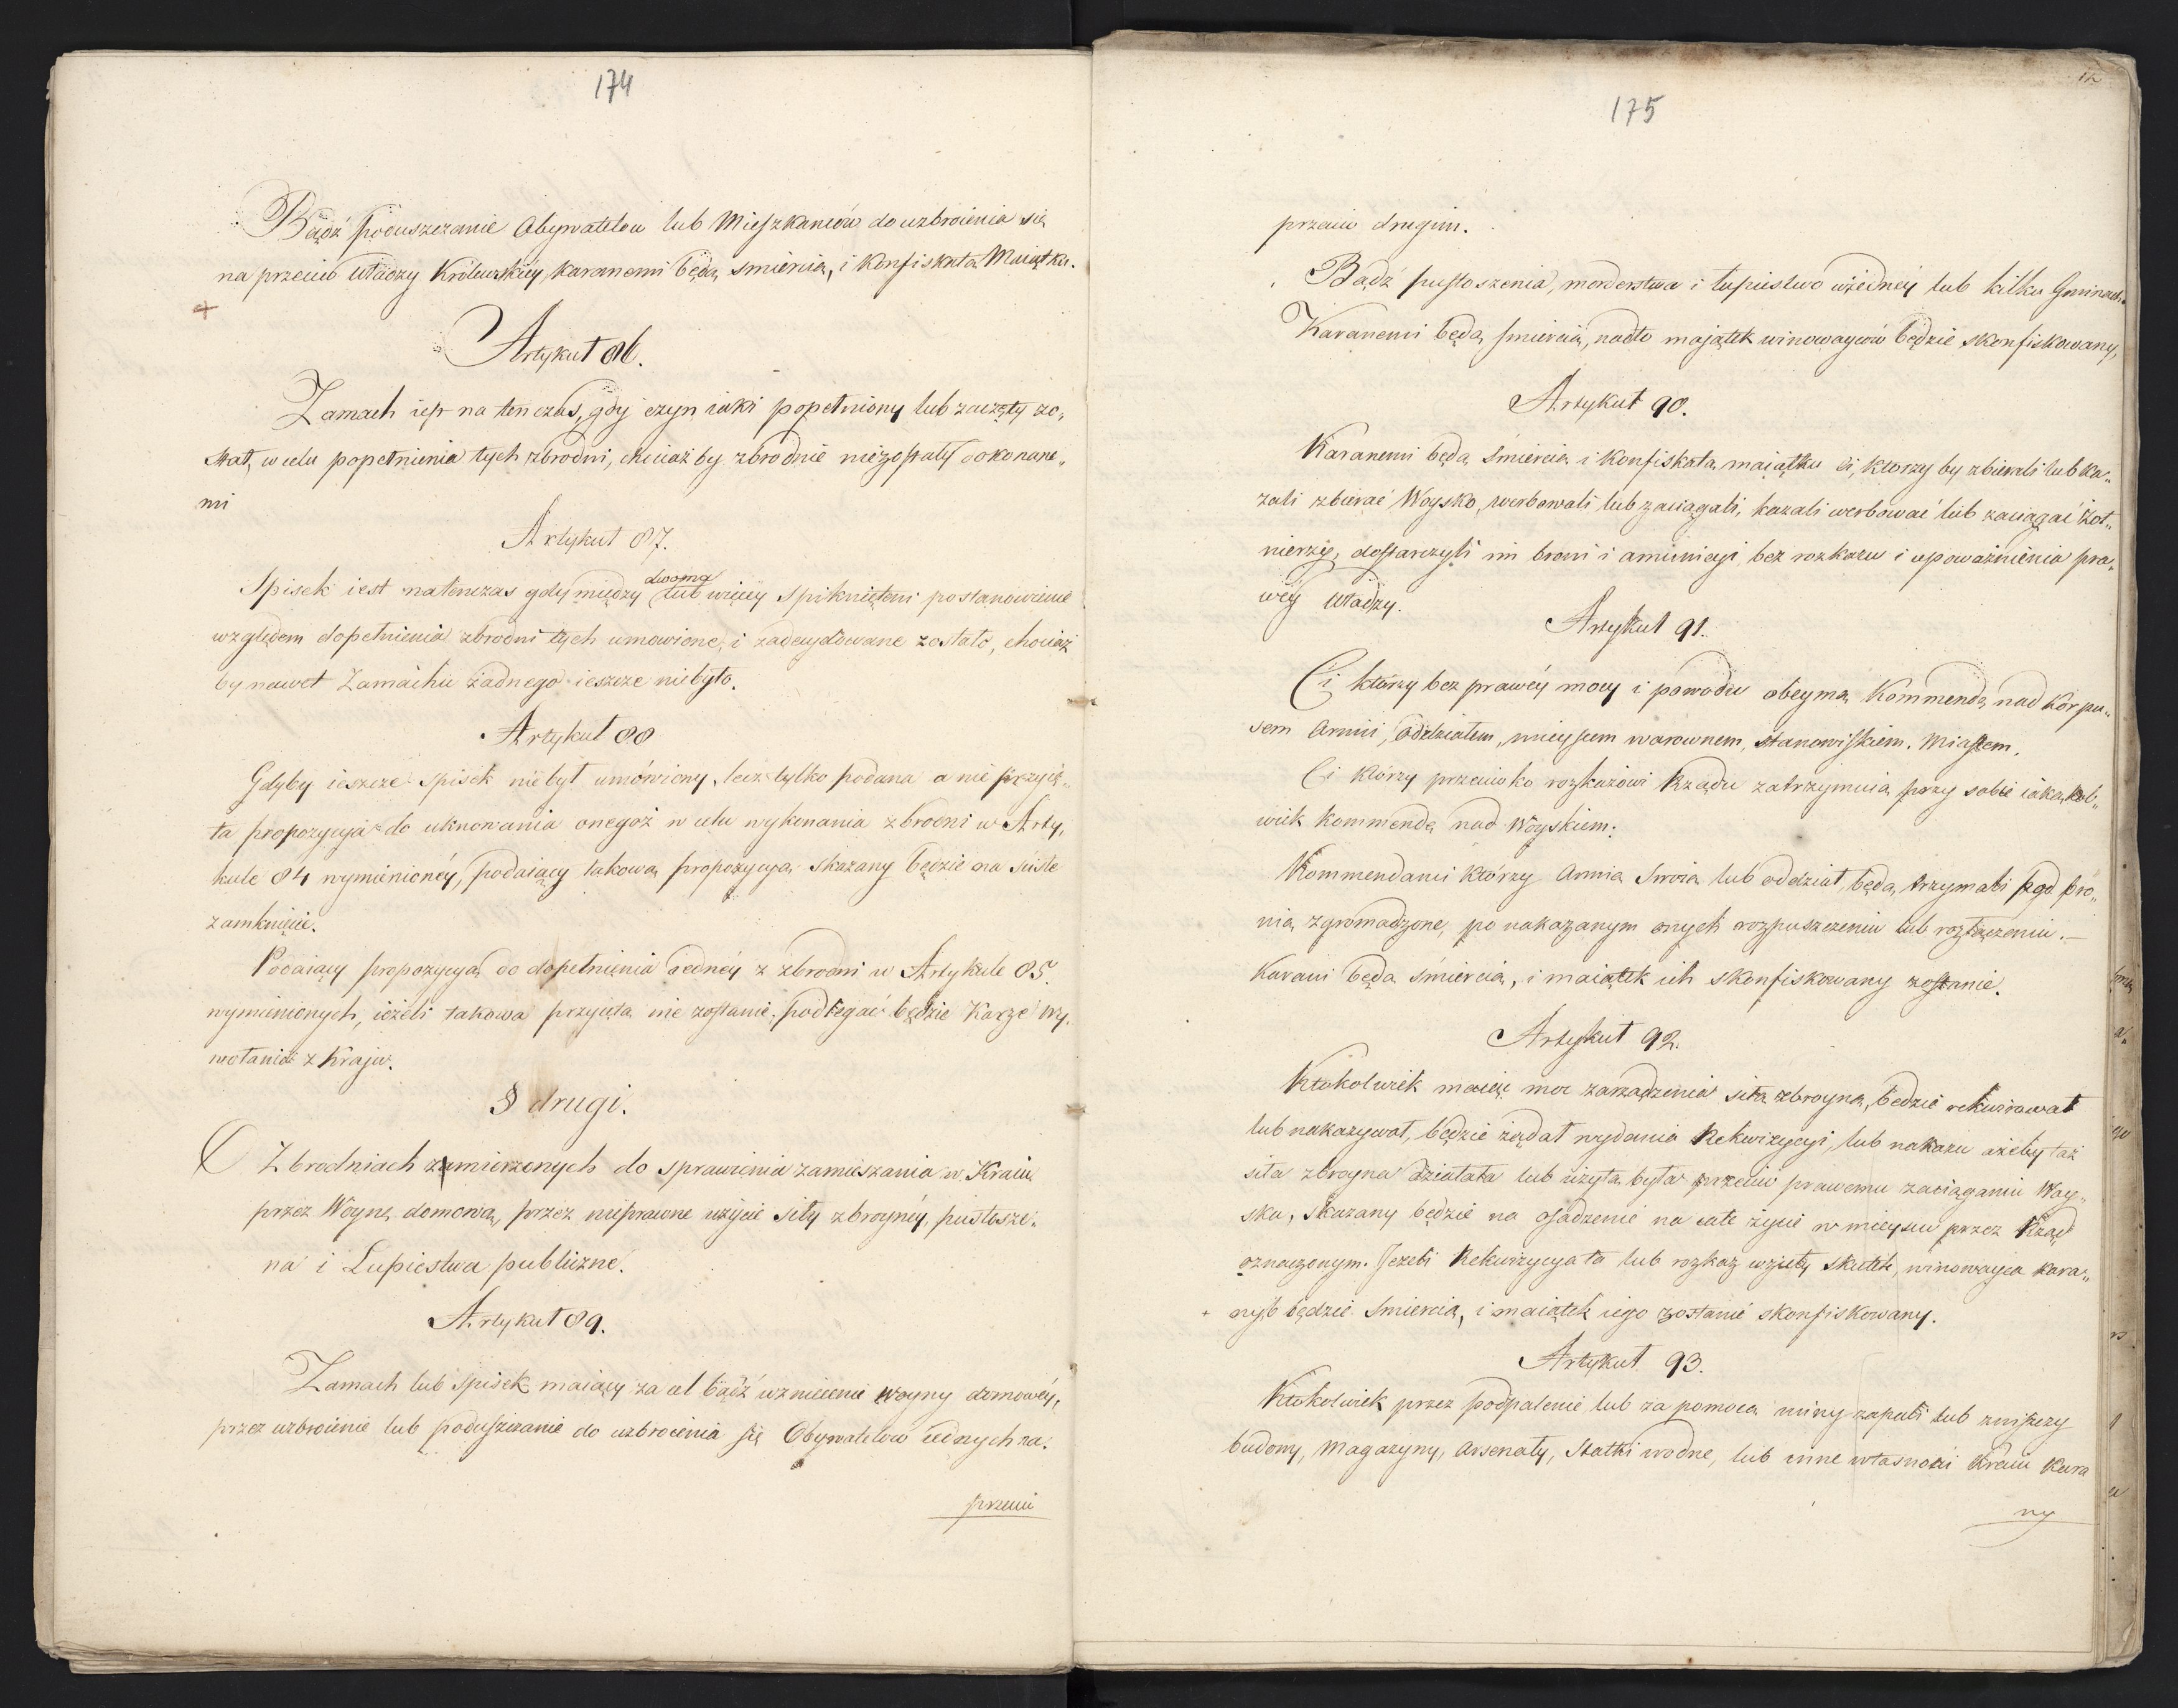 174
Bądź poduszczanie Obywatelow lub Mieszkancow do uzbroienia się
na przeciw władzy Królewskiéy, karanemi będą smiercią, i konfiskatą Maiątku.
Artykuł 86.
Zamach iest na ten czas, gdy czyn iaki popełniony lub zaczęty zo„
stał, w celu popełnienia tych zbrodni, chociaż by zbrodnie niezostały dokonane„
mi
Artykuł 87.
dwoma
Spisek iest natenczas gdy między lub więcéy spikniętemi postanowienie
względem dopełnienia zbrodni tych umowione, i zadecydowane zostało, chociaż
by nawet Zamachu żadnego ieszcze niebyło.
Artykuł 88
Gdyby ieszcze spisek niebył umówiony, lecz tylko podana a nie przyię„
ta propozycyja do uknowania onegoż w celu wykonania zbrodni w Arty„
kule 84 wymienionéy, podaiący takową propozycyą skazany będzie na ścisłe
zamknięcie.
Podaiący propozycyą do dopełnienia iednéy z zbrodni w Artykule 85.
wymienionych, ieżeli takowa przyięta nie zostanie, podlegać będzie karze wy„
wołania z kraju.
§ drugi.
O Zbrodniach zamierzonych do sprawienia zamieszania w Kraiu
przez Woynę domową, przez nieprawne użycie siły zbroynéy, pustosze„
na i Łupiestwa publiczne.
Artykuł 89.
Zamach lub Spisek maiący za cel bądź wzniecenie woyny domowéy,
przez uzbroienie lub poduszczanie do uzbroienia się Obywatelow iednych na„
przeciw
175
przeciw drugim.
Bądź pustoszenia, morderstwa i łupiestwo w iednéy lub kilku Gminach.
Karanemi będą smiercią, nadto majątek winowaycow będzie skonfiskowany,
Artykuł 90.
Karanemi będą śmiercią i konfiskatą maiątku ci, ktorzy by zbierali lub ka„
zali zbierać Woysko, werbowali lub zaciągali, kazali werbować lub zaciągać żoł„
nierzy, dostarczyli im broni i amunicyi, bez rozkazu i upoważnienia pra„
wéy władzy.
Artykuł 91.
Ci którzy bez prawéy mocy i powodu obeymą Kommendę nad korpu„
sem Armii, oddziałem, mieyscem warownem, stanowiskiem, Miastem.
Ci którzy przeciwko rozkazowi Rządu zatrzymuią przy sobie iakąkol„
wiek kommendę nad Woyskiem.
Kommendanci którzy Armią Swoią lub oddział, będą trzymali pod bro„
nią zgromadzone, po nakazanym onych rozpuszczeniu lub rozłączeniu.–
Karani będą śmiercią, i maiątek ich skonfiskowany zostanie.
Artykuł 92.
Ktokolwiek maiąc moc zarządzenia siłą zbroyną, będzie rekwirował
lub nakazywał, będzie żądał wydania Rekwizycyi, lub nakazu ażeby taż
siła zbroyna działała lub użytą była przeciw prawemu zaciąganiu Woy„
ska, skazany będzie na osadzenie na całe życie w mieyscu przez Rząd
oznaczonym. Jeżeli Rekwizycya ta lub rozkaz wzięły skutek, winowayca kara„
nyb będzie smiercią, i maiątek iego zostanie skonfiskowany.
Artykuł 93.
Ktokolwiek przez podpalenie lub za pomocą miny zapali lub zniszczy
budowy, Magazyny, Arsenały, Statki wodne, lub inne własności Kraiu kara
ny